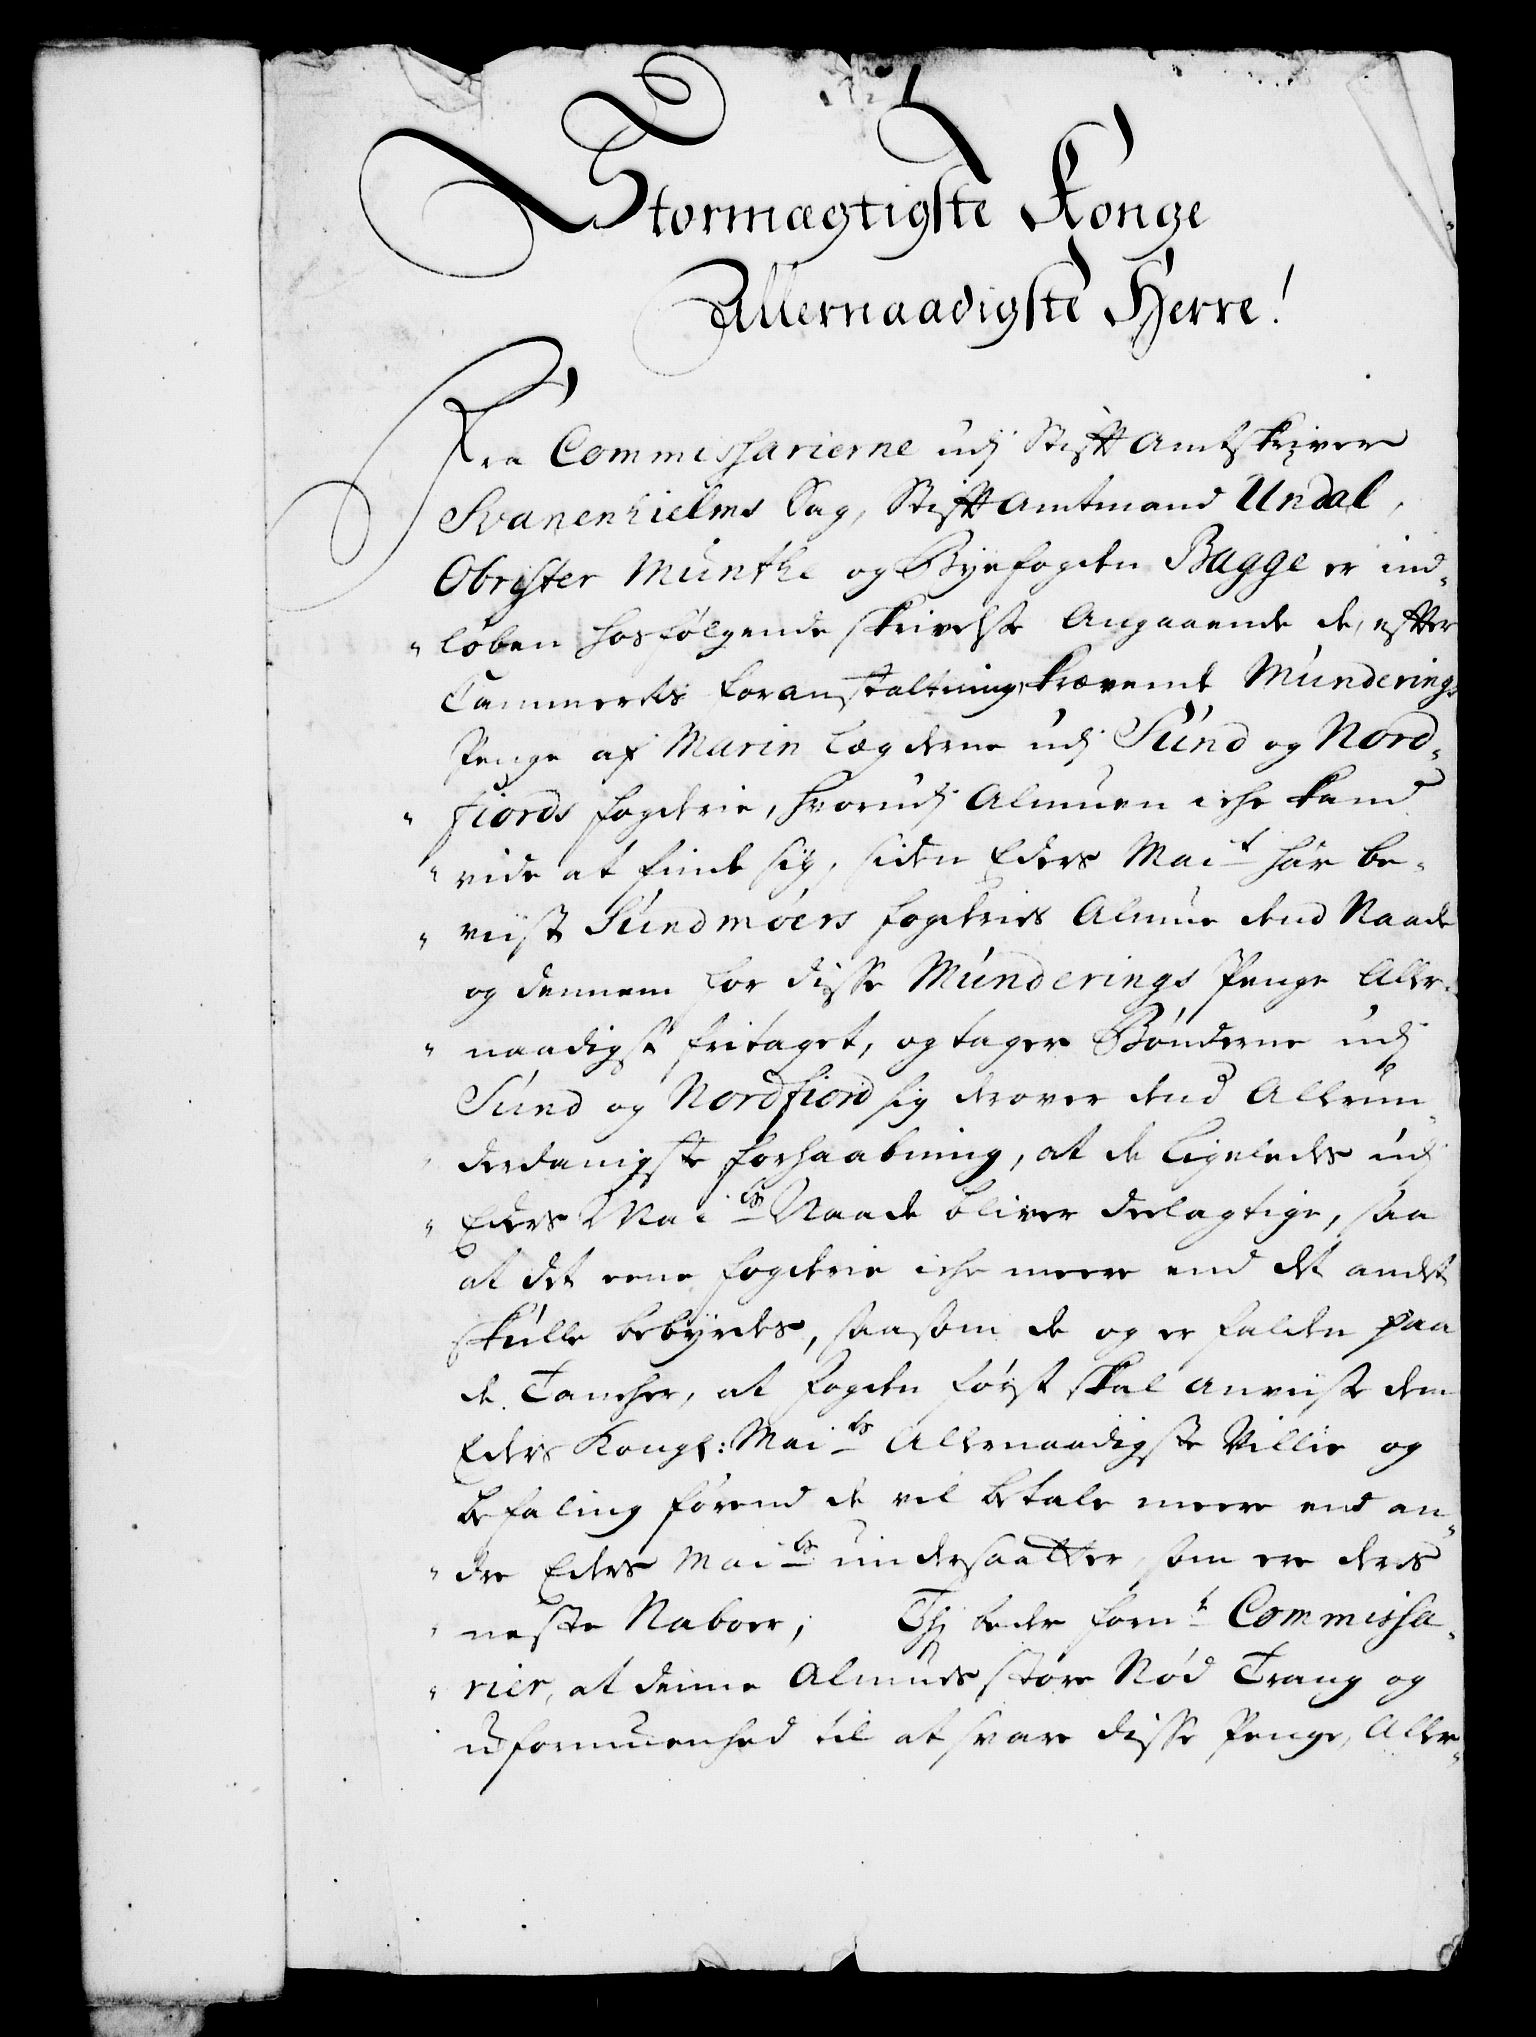 Stormægtigste Konge
Allernaadigste Herre!
Fra Commissarierne udj Stifft Amtskriver
Svanenhielms Sag, Stifft Amtmand Undal,
Obrister Munthe og Byefogden Bagge er ind-
løben hosfølgende skrivelse Angaaende de, effter
Cammerets foranstaltning, krævende Munderings
Penge af Marin Lægderne udj Sund og Nord-
fiords fogderie, hvorudj Almuen iche kand
vide at finde sig, siden Eders Mait har be-
viist Sundmøers fogderies Almue dend Naade
og dennem for disse Munderings Penge Aller-
naadigst fritaget, og tager Bønderne udj
Sund og Nordfiord sig derover dend Allerun-
derdanigste forhaabning, at de ligeledes udj
Eders Maits Naade bliver deelagtige, saa
at det eene fogderie iche meere end det andet
skulle bebyrdes, saasom de og er falden paa
de Tancher, at fogden først skal anviise dem
Eders Kongl: Maits Allernaadigste Villie og
befaling førend de vil betale meere end an-
dre Eders Maits undersaatter, som ere deres
neste Naboer; Thj beder fornte Commissa-
rier, at denne Almues store Nød Trang og
uformuenhed til at svare disse Penge, Aller-